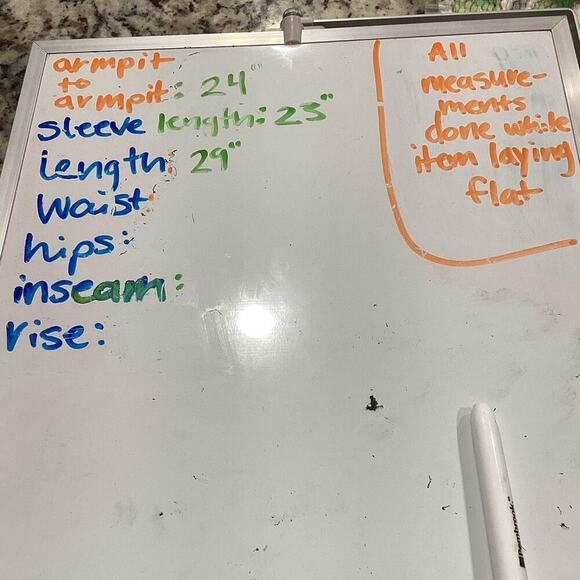 armpit
to
armpit: 24"
sleeve length: 23"
length: 29"
waist:
hips:
inseam:
rise:
All
measure-
ments
done while
item laying
flat